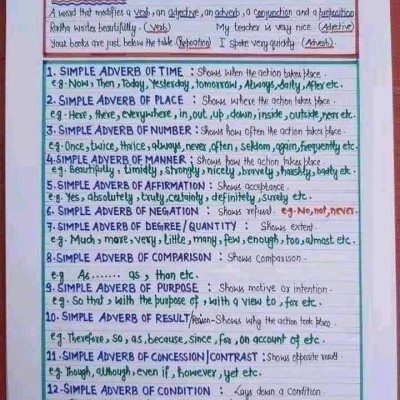 A word that modifies a verb, an adjective, an adverb, a conjunction and a preposition
Radha writes beautifully. (Verb) My teacher is very nice. (Adjective)
Your books are just below the table (Preposition) I spoke very quickly. (Adverb)
1. SIMPLE ADVERB OF TIME : Shows when the action takes place.
e.g. Now, Then, Today, Yesterday, tomorrow, Always, daily, After etc.
2. SIMPLE ADVERB OF PLACE : Shows where the action takes place.
e.g. Here, there, everywhere, in, out, up, down, inside, outside, near etc.
3. SIMPLE ADVERB OF NUMBER : Shows how often the action takes place.
e.g. Once, twice, thrice, always, never, often, seldom, again, frequently etc.
4. SIMPLE ADVERB OF MANNER : Shows how the action takes place.
e.g. Beautifully, timidly, strongly, nicely, bravely, harshly, badly etc.
5. SIMPLE ADVERB OF AFFIRMATION : Shows acceptance.
e.g. Yes, absolutely, truly, certainly, definitely, surely etc.
6. SIMPLE ADVERB OF NEGATION : Shows refusal. e.g. No, not, never.
7. SIMPLE ADVERB OF DEGREE/QUANTITY : Shows extent.
e.g. Much, more, very, little, many, few, enough, too, almost etc.
8. SIMPLE ADVERB OF COMPARISON : Shows comparison.
e.g As....... as, than etc.
9. SIMPLE ADVERB OF PURPOSE : Shows motive or intention.
e.g. So that, with the purpose of, with a view to, for etc.
10. SIMPLE ADVERB OF RESULT/Reason - Shows why the action took place.
e.g. Therefore, so, as, because, since, for, on account of etc.
11. SIMPLE ADVERB OF CONCESSION/CONTRAST : Shows opposite result
e.g. Though, although, even if, however, yet etc.
12. SIMPLE ADVERB OF CONDITION : Lays down a condition.